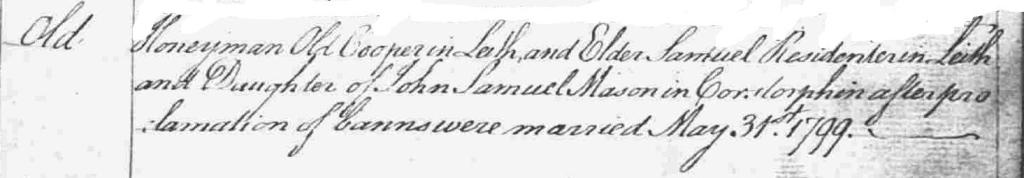 Old. Honeyman Old Cooper in Leith, and Elder Samuel Residenter in Leith
and Daughter of John Samuel Mason in Corstorphin after pro
:clamation of banns were married May 31st. 1799.